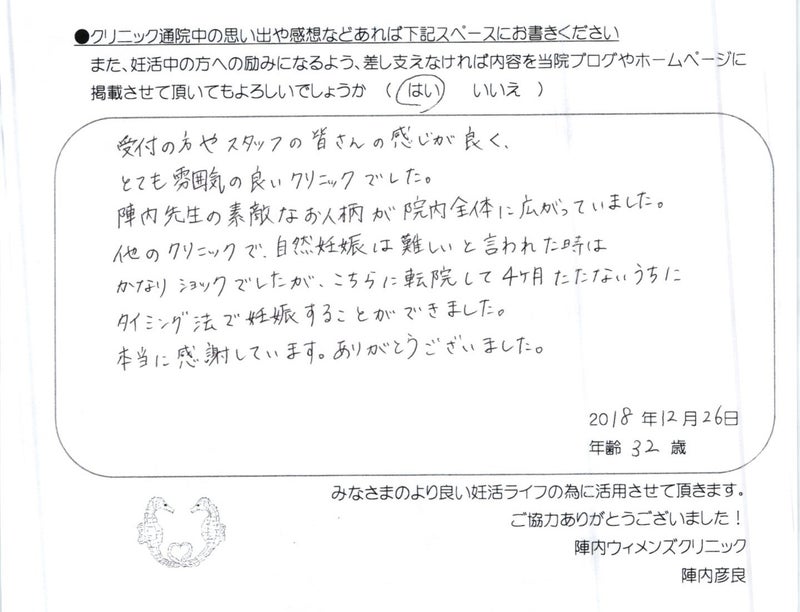 ●クリニック通院中の思い出や感想などあれば下記スペースにお書きください
また、妊活中の方への励みになるよう、差し支えなければ内容を当院ブログやホームページに
掲載させて頂いてもよろしいでしょうか （ はい　いいえ ）
受付の方やスタッフの皆さんの感じが良く、
とても雰囲気の良いクリニックでした。
陣内先生の素敵なお人柄が院内全体に広がっていました。
他のクリニックで、自然妊娠は難しいと言われた時は
かなりショックでしたが、こちらに転院して4ヶ月たたないうちに
タイミング法で妊娠することができました。
本当に感謝しています。ありがとうございました。
2018年12月26日
年齢 32 歳
みなさまのより良い妊活ライフの為に活用させて頂きます。
ご協力ありがとうございました！
陣内ウィメンズクリニック
陣内彦良